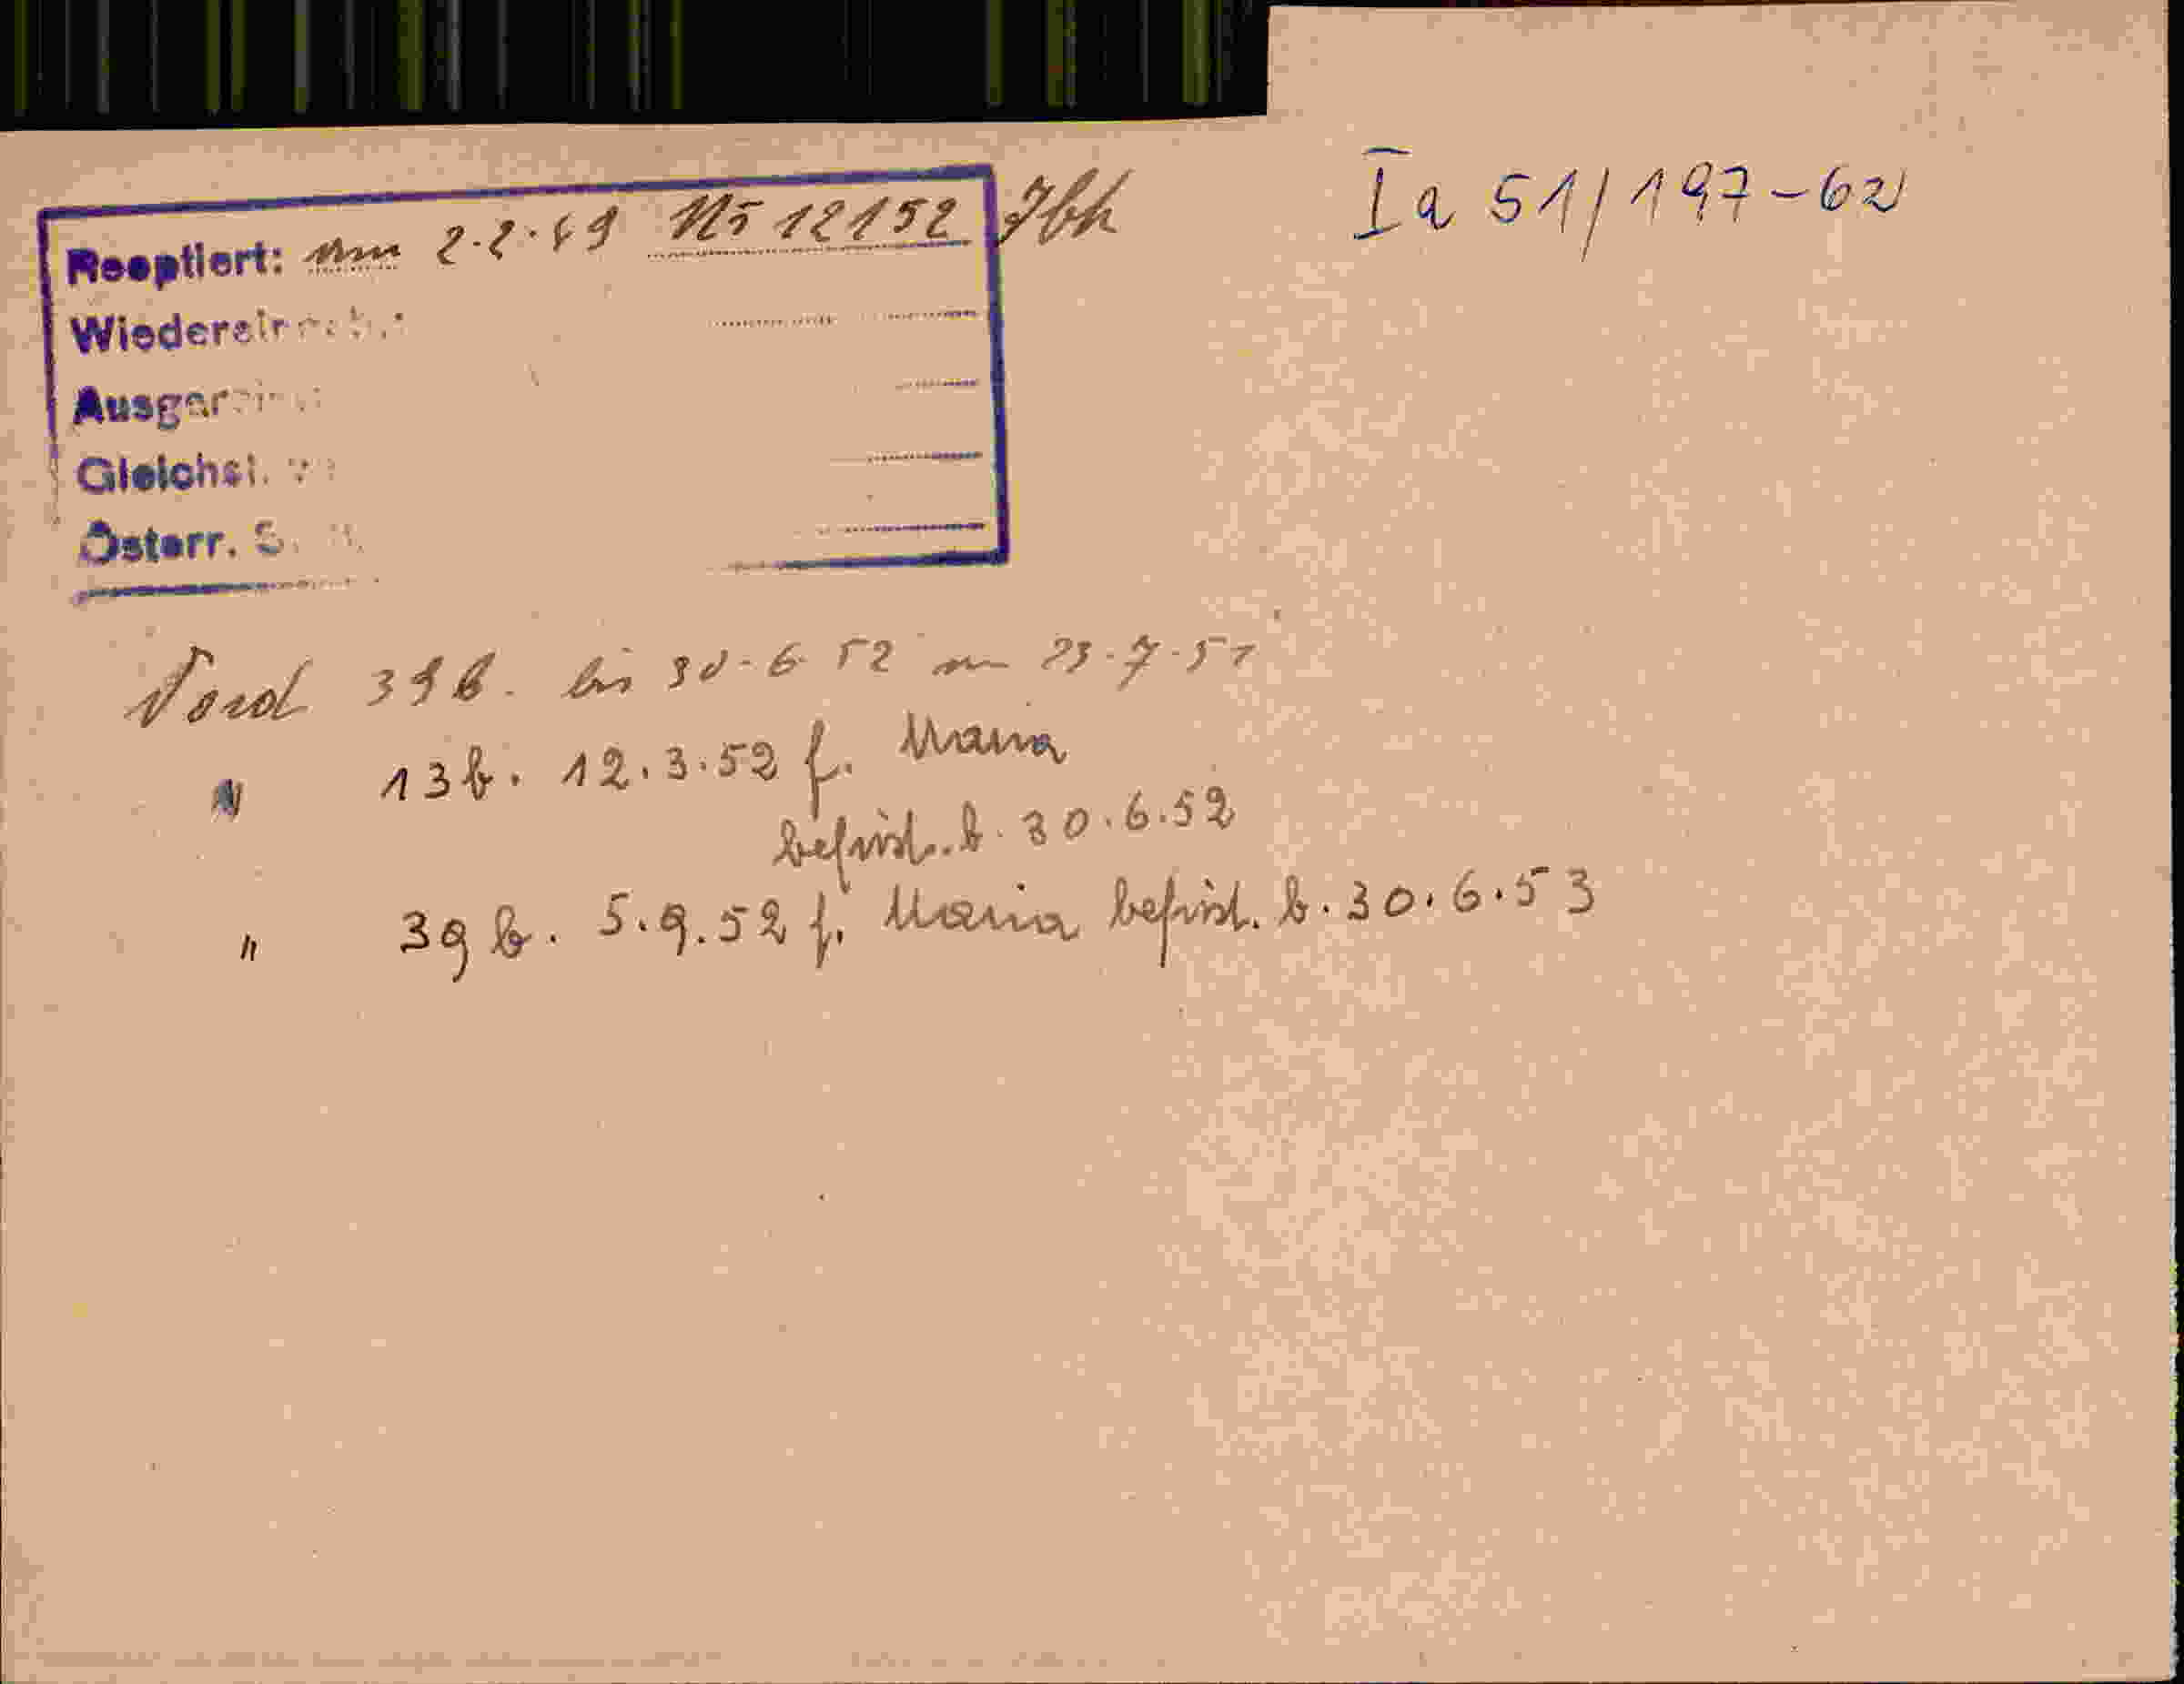 Reoptiert: am 2.2.49 No 12152 Jbk
Ia 51/197-62
Gleichst.
Österr. S.
39 b. bis 30.6.52 am 23.7.51
" 13 b. 12.3.52 f. Maria
befrist. b. 30.6.52
" 39 b. 5.9.52 f. Maria befrist. b. 30.6.53